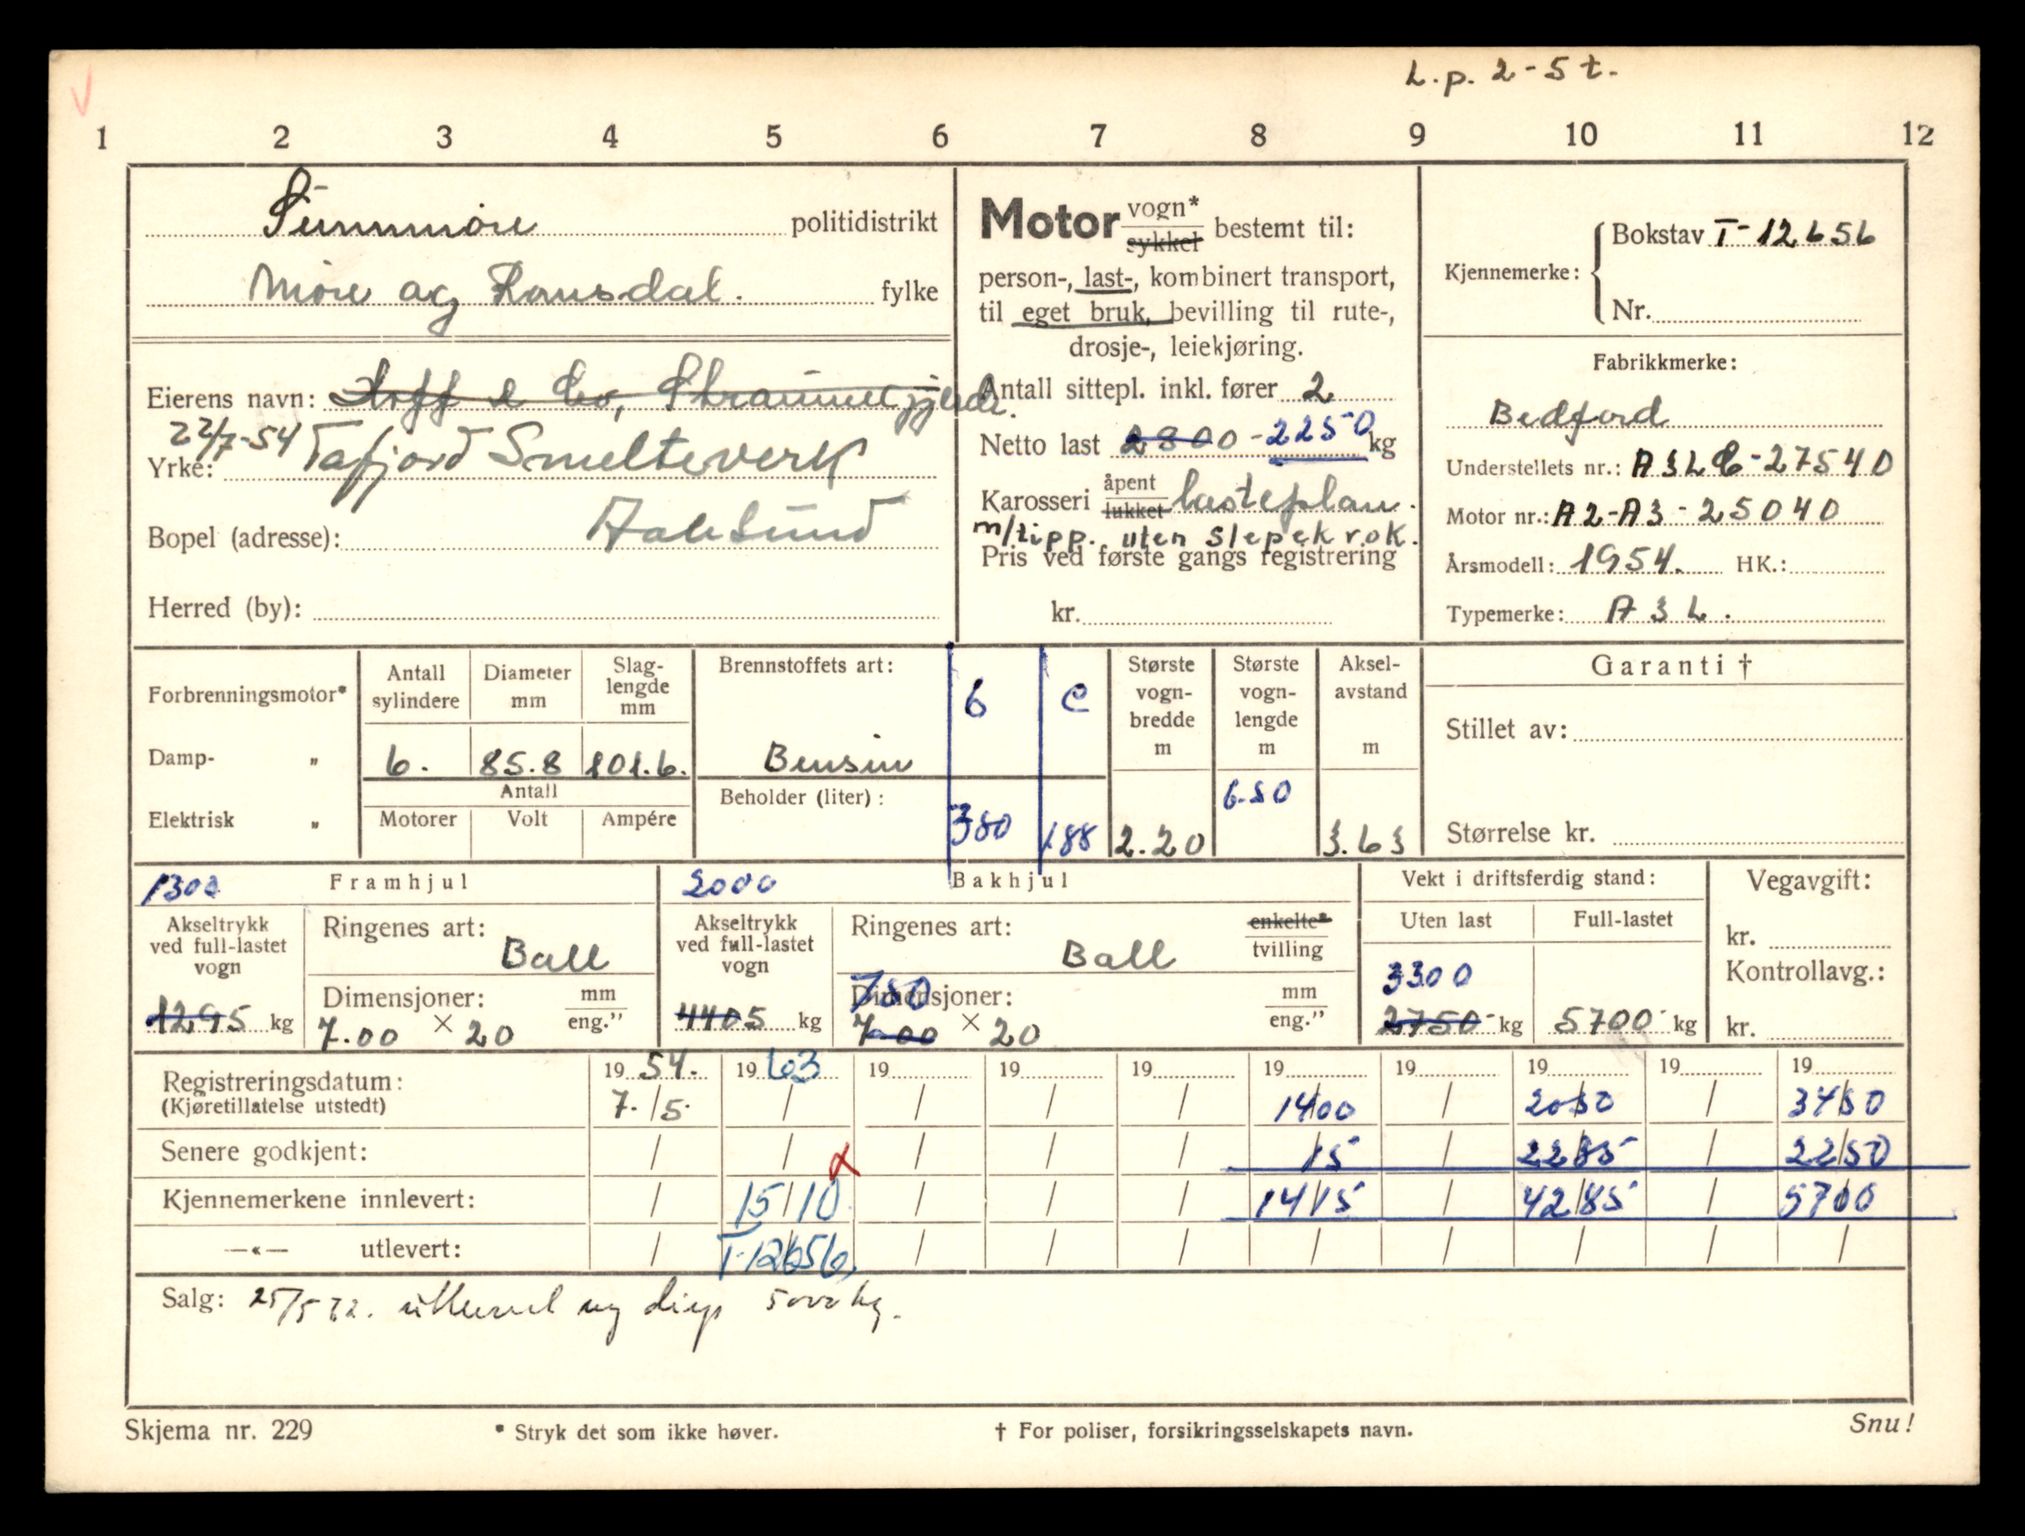 L.p. 2-5 t.
1 2 3 4 5 6 7 8 9 10 11 12
Sunnmøre politidistrikt
Møre og Romsdal. fylke
Eierens navn:
22/7-54 Tafjord Smelteverk
Yrke:
Bopel (adresse): Aalesund
Herred (by):
Motor vogn* sykkel bestemt til:
person-, last-, kombinert transport,
til eget bruk, bevilling til rute-,
drosje-, leiekjøring.
Antall sittepl. inkl. fører 2
Netto last 2800 - 2250 kg
Karosseri åpent lukket lasteplan.
m/tipp. uten slepekrok.
Pris ved første gangs registrering
kr.
Kjennemerke: Bokstav T-12656
Nr.
Fabrikkmerke:
Bedford
Understellets nr.: A3LC-27540
Motor nr.: A2-A3-25040
Årsmodell: 1954. HK.:
Typemerke: A3L.
Forbrenningsmotor*
Damp- "
Elektrisk "
Antall sylindere
6.
Diameter mm
85.8
Slag- lengde mm
101.6.
Antall
Motorer Volt Ampére
Brennstoffets art:
Bensin
Beholder (liter):
b c
380 188
Største vogn- bredde m
2.20
Største vogn- lengde m
6.50
Aksel- avstand m
3.63
Garanti †
Stillet av:
Størrelse kr.
1300 Framhjul
Akseltrykk ved full-lastet vogn
1295 kg
Ringenes art:
Ball
Dimensjoner: mm eng."
7.00 × 20
2000 Bakhjul
Akseltrykk ved full-lastet vogn
4405 kg
Ringenes art: enkelte* tvilling
Ball
750
Dimensjoner: mm eng."
7.00 × 20
Vekt i driftsferdig stand:
Uten last Full-lastet
3300
2750 kg 5700 kg
Vegavgift:
kr.
Kontrollavg.:
kr.
19 54. 19 63 19 19 19 19 19 19 19 19
Registreringsdatum:
(Kjøretillatelse utstedt) 7. / 5. / / / / 1400 / 2050 / 3450
Senere godkjent: / / / / / 15 / 2285 / 2250
Kjennemerkene innlevert: / 15/10 / / / 1415 / 4285 / 5700
—«— utlevert: / T-12656 / / / / / / / /
Salg: 25/5 72.
Skjema nr. 229
* Stryk det som ikke høver.
† For poliser, forsikringsselskapets navn.
Snu!